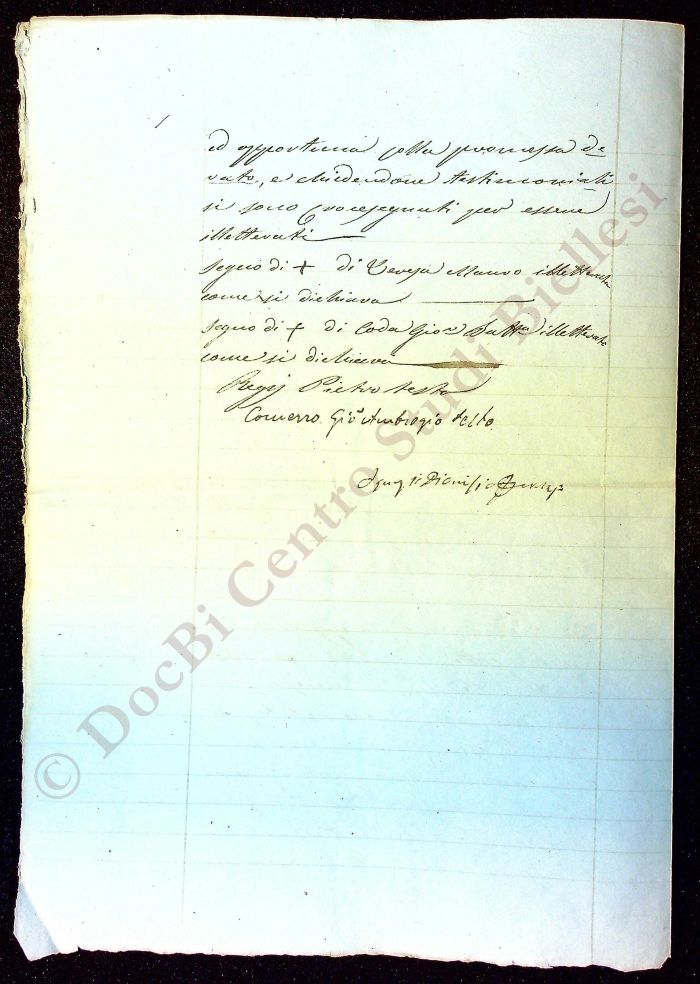 ed opportuna colla promessa de
rato, e chiedendone testimoniali
si sono crocesegnati per essere
illetterati
segno di + di Teresa Mauro illetterata
come si dichiara
segno di + di Coda Gioⁿ Battᵃ illetterato
come si dichiara
Regis Pietro testo
Comerro Gioⁿ Ambrogio testo
© DocBi Centro Studi Biellesi